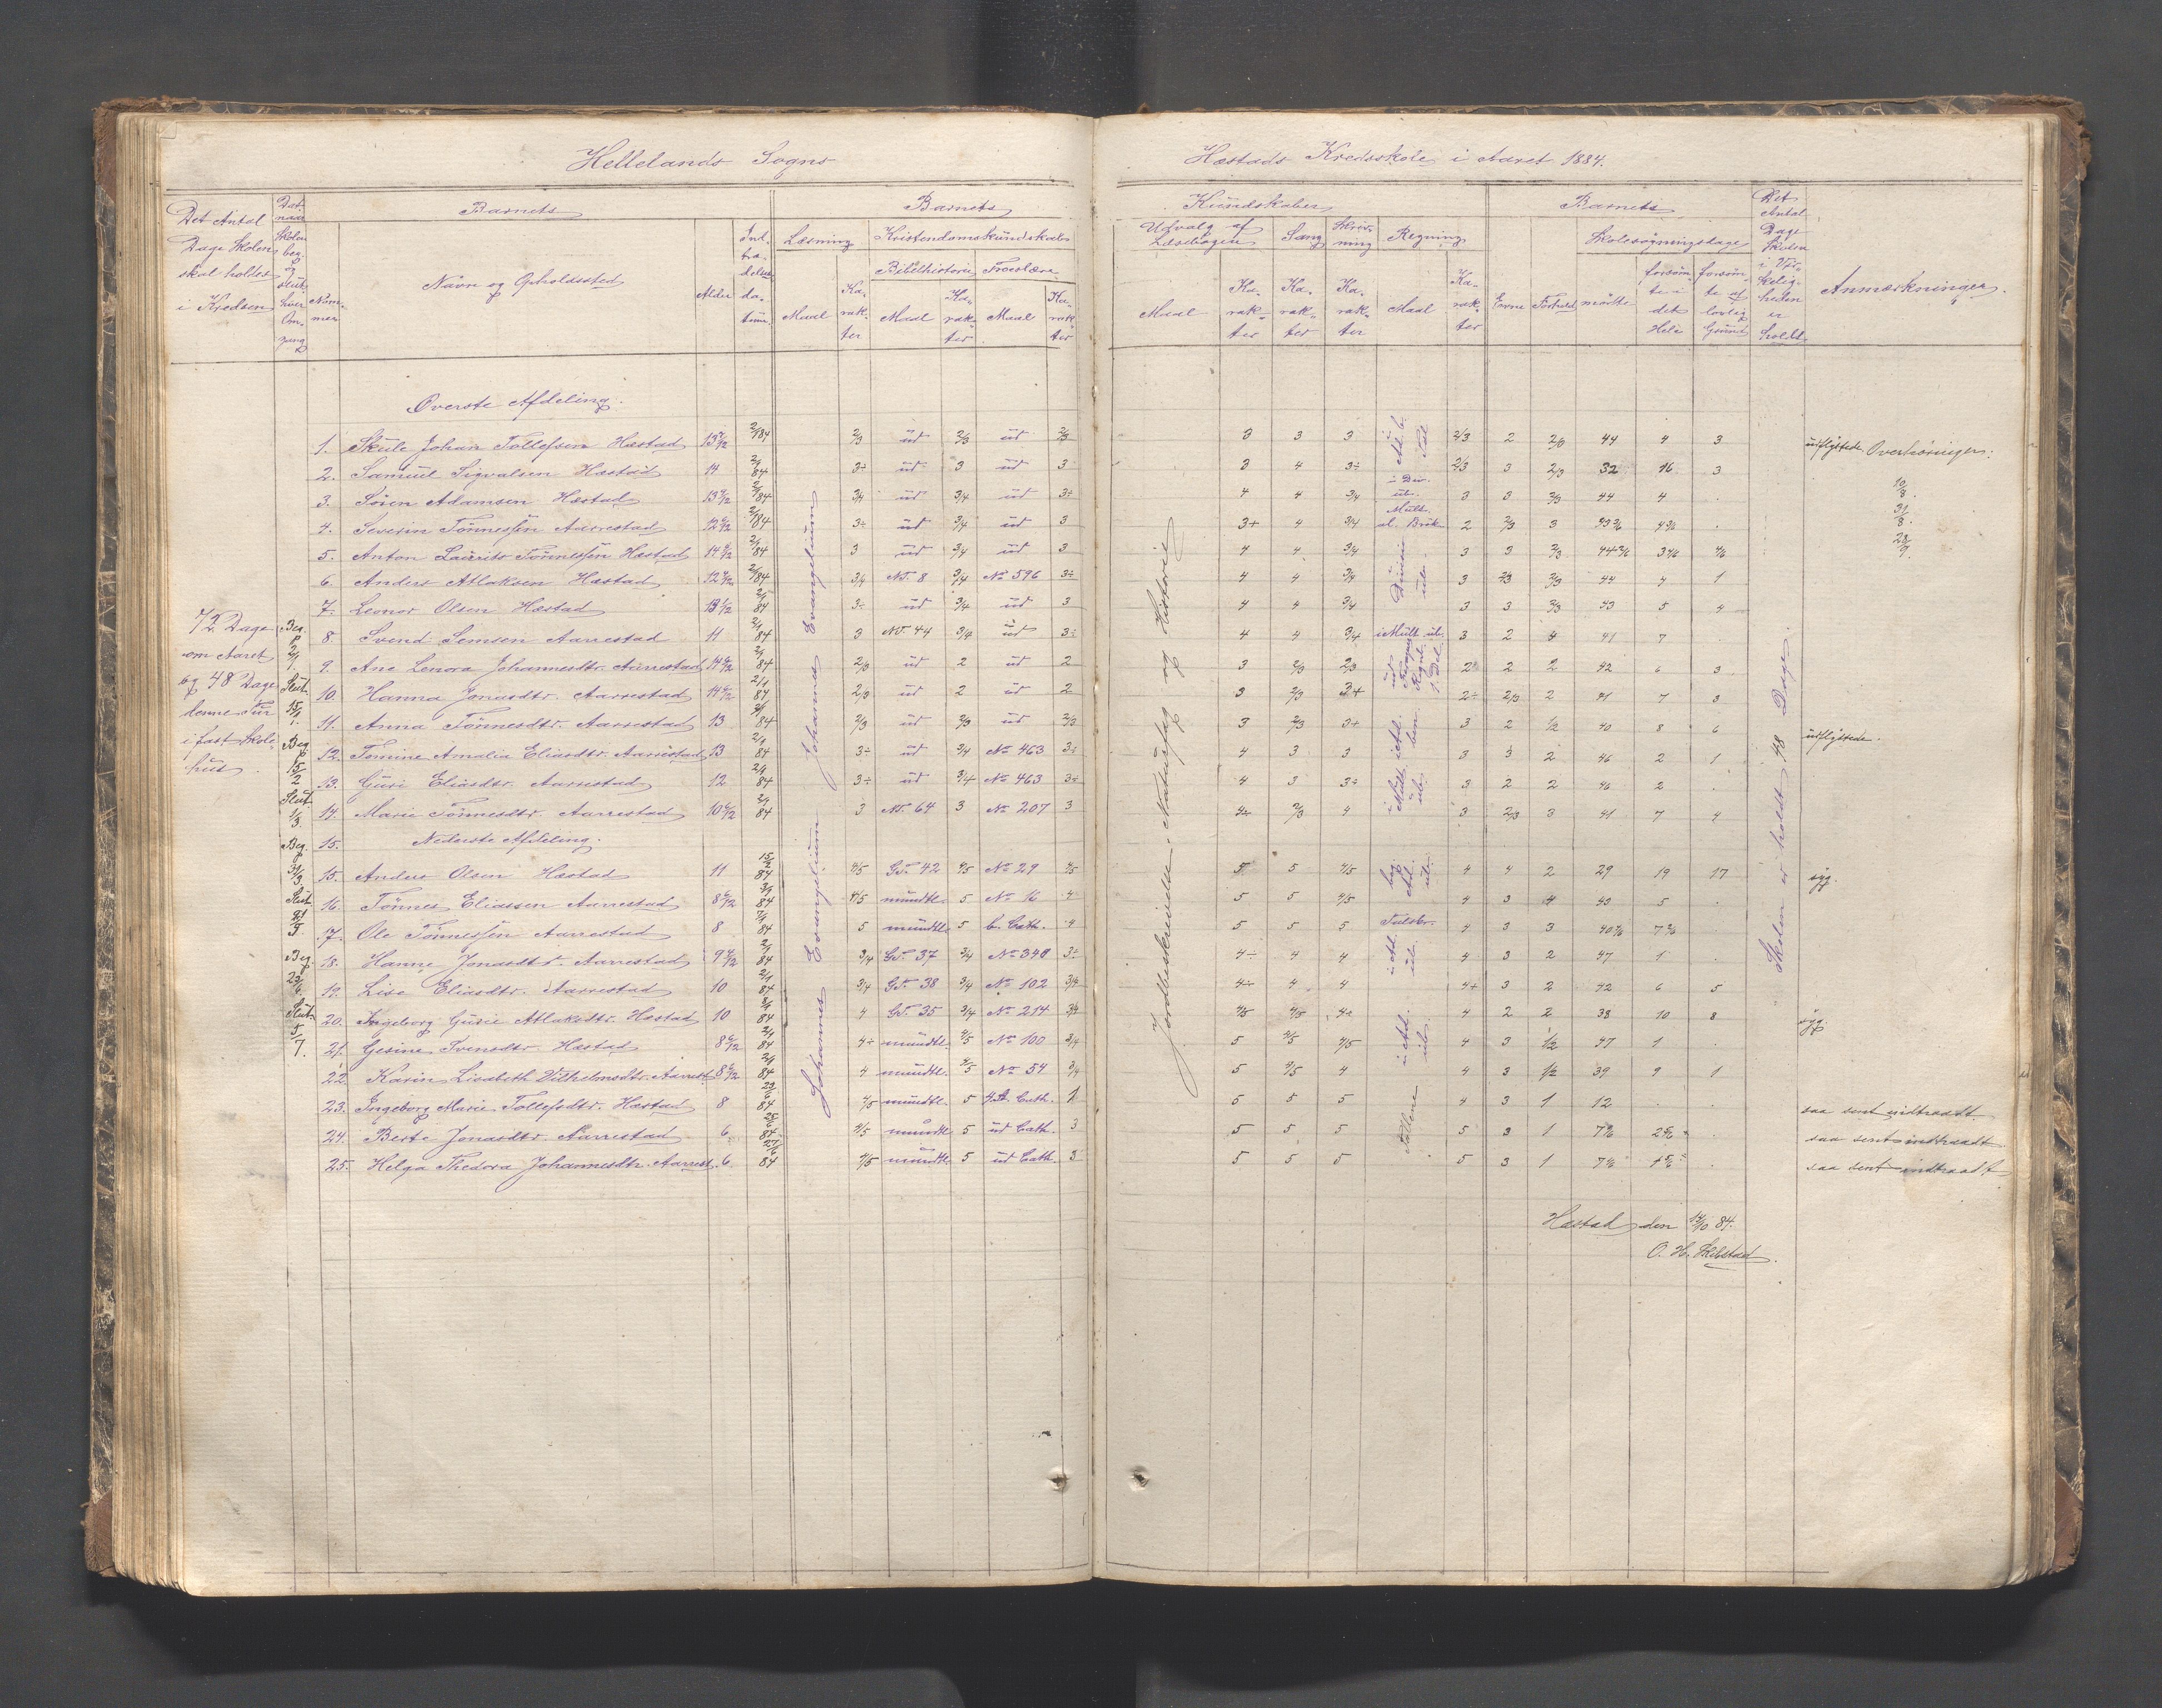 Hellelands Sogns
Hæstads Kredsskole i Aaret 1884.
Det Antal Dage Skolen skal holdes i Kredsen
Datum naar Skolen beg. og slut. hver Omgang
Nummer
Barnets
Navn og Opholdssted
Alder
Indtrædelsesdatum
Barnets
Læsning
Kristendomskundskab
Bibelhistorie
Troeslære
Maal
Karakter
Maal
Karakter
Maal
Karakter
Kundskaber
Udvalg af Læsebogen
Sang
Skrivning
Regning
Maal
Karakter
Karakter
Karakter
Maal
Karakter
Barnets
Evne
Forhold
Skolesøgningsdage
mødte
forsømte i det Hele
forsømte af lovlig Grund
Det Antal Dage Skolen i Virkelighden er holdt
Anmærkninger
Øverste Afdeling.
1. Skule Johan Tollefsen Hæstad 13 7/12 2/1 84 2/3 ud 2/3 ud 2/3 3 3 3 2/3 2 2/3 44 4 3 udflyttede Overhøringer:
2. Samuel Sigvalsen Hæstad 14 2/1 84 3÷ ud 3 ud 3 3 4 3÷ 2/3 3 2/3 32 16 3
3. Søren Adamsen Hæstad 13 7/12 2/1 84 3/4 ud 3/4 ud 3÷ 4 4 3/4 3 3 2/3 44 4 . 10/3.
4. Severin Tønnessen Aarrestad 12 6/12 2/1 84 3÷ ud 3/4 ud 3 3+ 4 3/4 2 2/3 3 . 31/3.
5. Anton Laurits Tønnessen Hæstad 14 6/12 2/1 84 3 ud 3/4 ud 3 4 4 3/4 3 3 2/3
6. Anders Atlaksen Hæstad 12 7/12 2/1 84 3/4 NT. 8 3/4 No 596 3÷ 4 4 3/4 3 2/3 2/3 44 4 1
7. Leonor Olsen Hæstad 13 1/12 2/1 84 3÷ ud 3/4 ud 3 4 4 3/4 3 3 2/3 43 5 4
8. Svend Semsen Aarrestad 11 2/1 84 3 NT. 44 3/4 ud 3÷ 4 4 3/4 3 2 4 41 7
9. Ane Lenora Johannesdtr. Aarrestad 14 6/12 2/1 84 2/3 ud 2 ud 2 3 2/3 2/3 2 2 2 42 6 3
10. Hanna Jonasdtr. Aarrestad 14 6/12 2/1 84 2/3 ud 2 ud 2 3 2/3 3+ 2÷ 2/3 2 41 7 3
11. Anna Tønnesdtr. Aarrestad 13 2/1 84 2/3 ud 2/3 ud 2/3 3 2/3 3+ 3 2 1/2 40 8 6 udflyttede.
12. Tomine Amalia Eliasdtr. Aarrestad 13 2/1 84 3÷ ud 3/4 No 463 3÷ 4 3 3 3 3 2 46 2 1
13. Guri Eliasdtr. Aarrestad 12 2/1 84 3÷ ud 3/4 No 463 3÷ 4 3 3÷ 3 2 2 46 2 .
14. Marie Tønnesdtr. Aarrestad 10 6/12 2/1 84 3 NT. 64 3 No 207 3 4 2/3 4 3 2/3 3 41 7 4
15. Nederste Afdeling.
15. Anders Olsen Hæstad 11 15/2 84 4/5 GT. 42 4/5 No 29 4/5 5 5 4/5 4 4 2 29 19 17 syg.
16. Tønnes Eliassen Aarrestad 8 6/12 84 4/5 mundtl. 5 No 16 4 5 5 4/5 4 3 4 43 5 .
17. Ole Tønnessen Aarrestad 8 84 5 mundtl. 5 C. Cath. 4 5 5 5 4 3 3
18. Hanne Jonasdtr. Aarrestad 9 6/12 2/1 84 3/4 GT. 37 3/4 No 340 3÷ 4÷ 4 4 4 3 2 47 1 .
19. Lise Eliasdtr. Aarrestad 10 2/1 84 3/4 GT. 38 3/4 No 102 3/4 4÷ 4 4 4+ 3 2 42 6 5
20. Ingeborg Gurie Atlaksdtr. Hæstad 10 8/1 84 4 GT. 35 3/4 No 214 3/4 4/5 4/5 4 4 2 2 38 10 8 syg.
21. Gesine Svensdtr. Hæstad 8 6/12 2/1 84 4÷ mundtl. 4/5 No 100 3/4 5 4/5 4/5 4 3 1/2 47 1 .
22. Karin Lisabeth Vilhelmsdtr. Aarrest. 8 6/12 2/1 84 4 mundtl. 4/5 No 54 3/4 5 4/5 4 4 3 1/2 39 9 1
23. Ingeborg Marie Tollefsdtr. Hæstad 8 84 4/5 mundtl. 5 Cath. 5 5 5 4 3 1 12 . . saa sent indtraadt
24. Berte Jonasdtr. Aarrestad 6. 84 4/5 mundtl. 5 ud Cath. 3 5 5 5 5 3 1 saa sent indtraadt
25. Helga Thedora Johannesdtr. Aarrest. 6. 84 4/5 mundtl. 5 ud Cath. 3 5 5 5 5 3 1 saa sent indtraadt
72 Dage
om Aaret
og 48 Dage
denne Tur
i fast Skole-
hus.
Beg. 2/1.
Slut. 15/1.
Beg. 15/2
Slut. 1/3.
Beg. 31/3.
Slut.
Beg. 23/6.
Slut. 5/7.
Johannes Evangelium
Johannes Evangelium
Jordbeskrivelse, Naturfag og Historie
Skolen er holdt 48 Dage.
Hæstad den 14/10 84.
O. H. Skibstad.